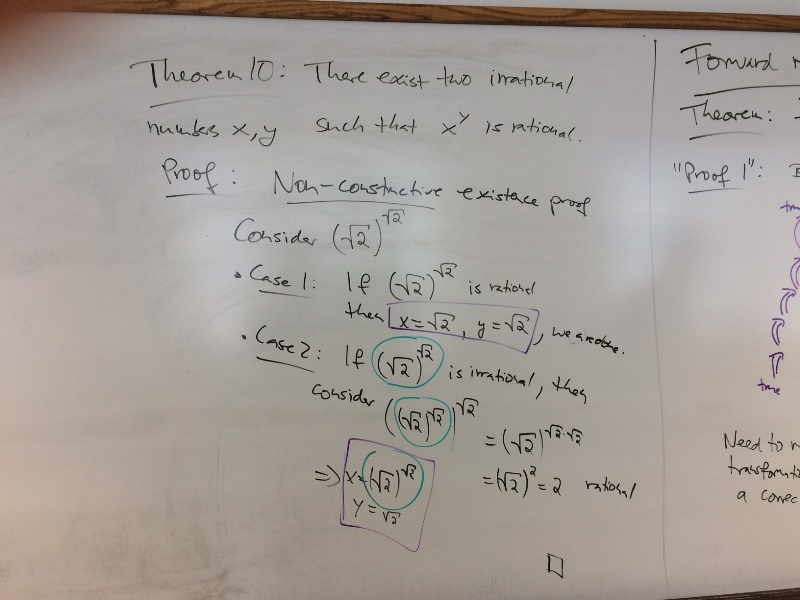 Theorem 10: There exist two irrational
numbers x, y such that x^y is rational.
Proof: Non-constuctive existence proof
Consider (√2)^√2
• Case 1: If (√2)^√2 is rational
then x = √2, y = √2, we are done.
• Case 2: If (√2)^√2 is irrational, then
consider ((√2)^√2)^√2 = (√2)^√2·√2
= (√2)^2 = 2 rational
⇒ x = (√2)^√2
y = √2
□
Forward
Theorem:
"Proof 1":
true
true
Need to
a